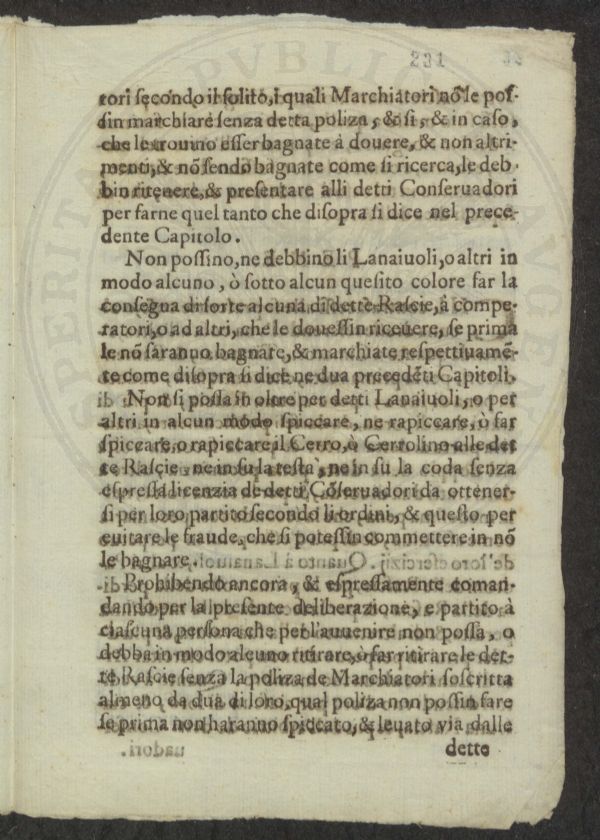 231
tori secondo il solito, i quali Marchiatori nõ le pos-
sin marchiare senza detta poliza, & si, & in caso,
che le trouino esser bagnate à douere, & non altri-
menti, & nõ sendo bagnate come si ricerca, le deb-
bin ritenere, & presentare alli detti Conseruadori
per farne quel tanto che disopra si dice nel prece-
dente Capitolo.
Non possino, ne debbino li Lanaiuoli, o altri in
modo alcuno, ò sotto alcun quesito colore far la
consegna di sorte alcuna di dette Rascie, à compe-
ratori, o ad altri, che le douessin riceuere, se prima
le nõ saranno bagnate, & marchiate respettiuamẽ-
te come disopra si dice ne dua precedẽti Capitoli.
Non si possa in oltre per detti Lanaiuoli, o per
altri in alcun modo spiccare, ne rapiccare, ò far
spiccare, o rapiccare il Cerro, ò Cerrolino alle det
te Rascie, ne in su la testa, ne in su la coda senza
espressa licenzia de detti Cõseruadori da ottener-
si per loro partito secondo li ordini, & questo per
euitare le fraude, che si potessin commettere in nõ
le bagnare.
Prohibendo ancora, & espressamente coman-
dando per la presente deliberazione, e partito à
ciascuna persona che per l'auuenire non possa, o
debba in modo alcuno ritirare, ò far ritirare le det-
te Rascie senza la poliza de Marchiatori soscritta
almeno da dua di loro, qual poliza non possin fare
se prima non haranno spiccato, & leuato via dalle
dette